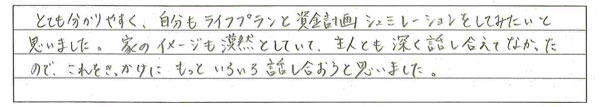 とても分かりやすく、自分もライフプランと資金計画シュミレーションをしてみたいと
思いました。家のイメージも漠然としていて、主人とも深く話し合えてなかった
ので、これをきっかけにもっといろいろ話し合おうと思いました。